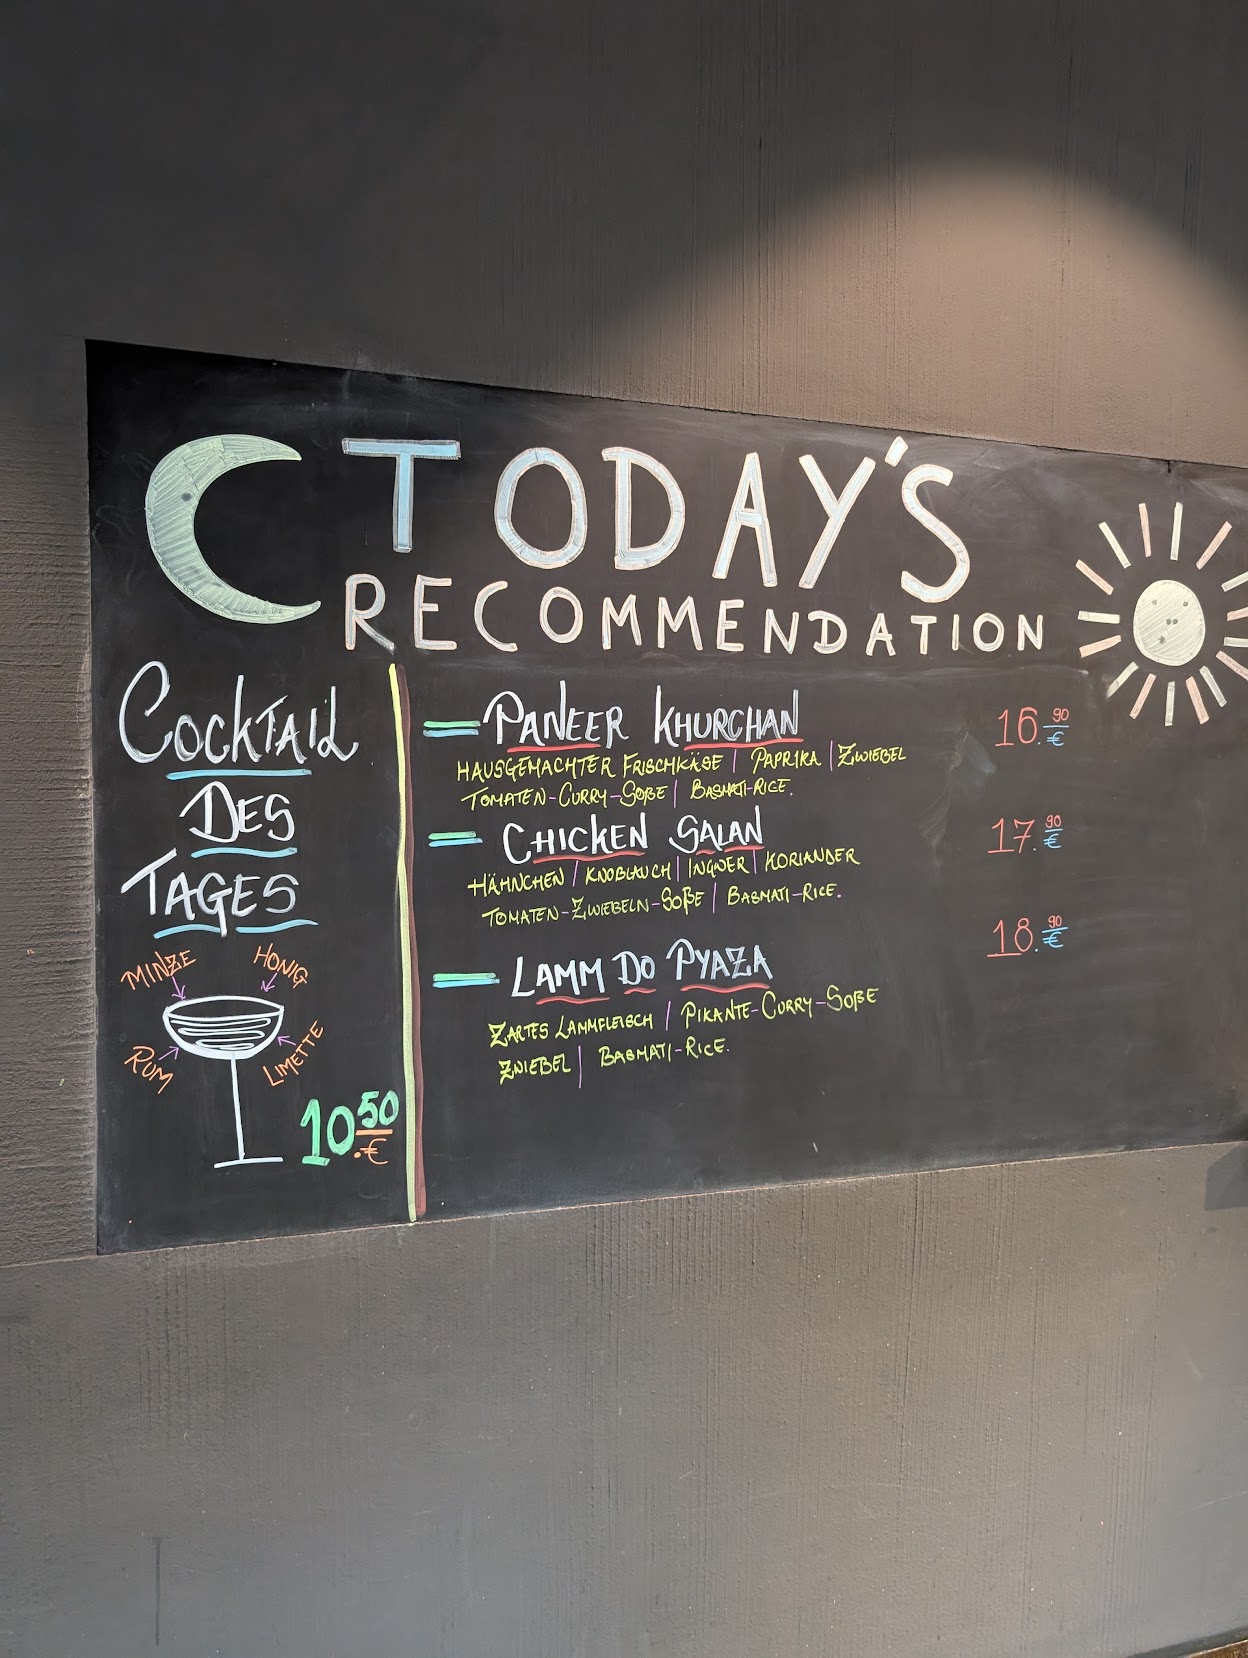 TODAY'S
RECOMMENDATION
COCKTAIL
DES
TAGES
MINZE
HONIG
RUM
LIMETTE
10.50 €
PANEER KHURCHAN 16.90 €
HAUSGEMACHTER FRISCHKÄSE | PAPRIKA | ZWIEBEL
TOMATEN-CURRY-SOßE | BASMATI-RICE.
CHICKEN SALAN 17.90 €
HÄHNCHEN | KNOBLAUCH | INGWER | KORIANDER
TOMATEN-ZWIEBELN-SOßE | BASMATI-RICE.
LAMM DO PYAZA 18.90 €
ZARTES LAMMFLEISCH | PIKANTE-CURRY-SOßE
ZWIEBEL | BASMATI-RICE.